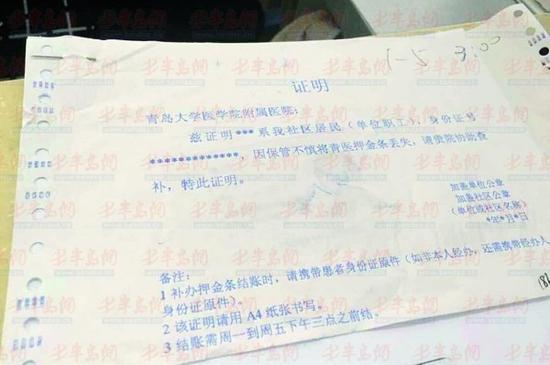 1-5 3:00
证明
青岛大学医学院附属医院：
兹证明***系我社区居民（单位职工），身份证号
***************，因保管不慎将青医押金条丢失，请贵院协助查
补，特此证明。
加盖单位公章
加盖社区公章
（单位或社区名称）
*年*月*日
备注：
1 补办押金条结账时，请携带患者身份证原件（如非本人经办，还需携带经办人
身份证原件）。
2 该证明请用 A4 纸张书写。
3 结账需周一到周五下午三点之前结。
半岛网